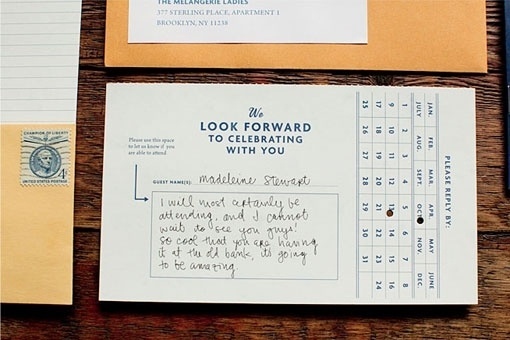 THE MELANGERIE LADIES
377 STERLING PLACE, APARTMENT 1
BROOKLYN, NY 11238
CHAMPION OF LIBERTY
4¢
UNITED STATES POSTAGE
We
LOOK FORWARD
TO CELEBRATING
WITH YOU
Please use this space
to let us know if you
are able to attend
GUEST NAME(S): Madeleine Stewart
I will most certainly be
attending, and I cannot
wait to see you guys!
So cool that you are having
it at the old bank, its going
to be amazing.
PLEASE REPLY BY:
JAN. FEB. MAR. APR. MAY JUNE
JULY AUG. SEPT. OCT. NOV. DEC.
1 2 3 4 5 6 7 8
9 10 11 12 13 14 15 16
17 18 19 20 21 22 23 24
25 26 27 28 29 30 31